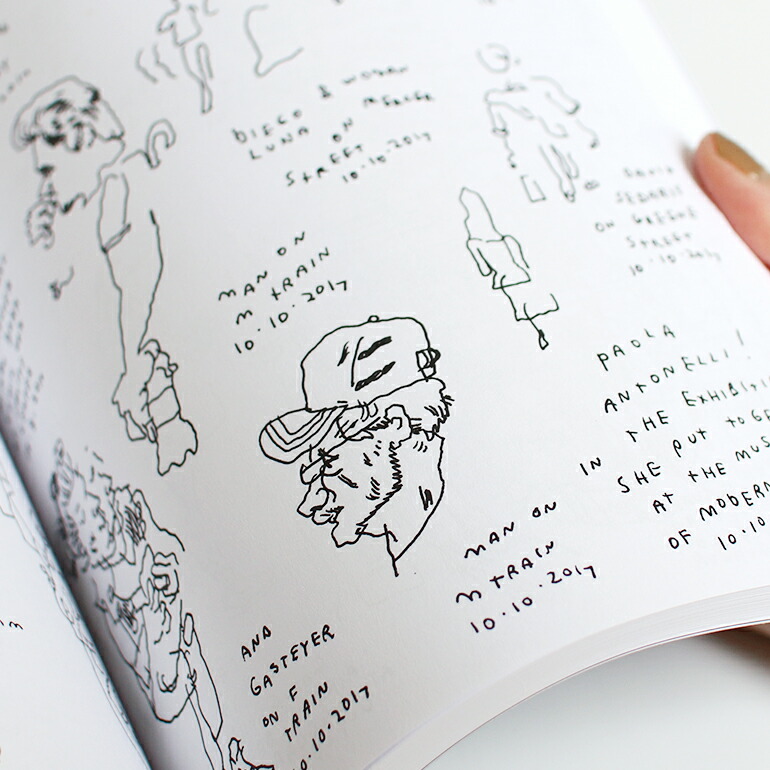 DIEGO & WOMAN
LUNA ON MERCER
STREET
10.10.2017
SEDARIS
ON GREENE
STREET
10.10.2017
MAN ON
M TRAIN
10.10.2017
PAOLA
ANTONELLI!
IN THE EXHIBITI
SHE PUT TOGE
AT THE MUS
OF MODERN
10.10
MAN ON
M TRAIN
10.10.2017
AND
GASTEYER
ON F
TRAIN
10.10.2017